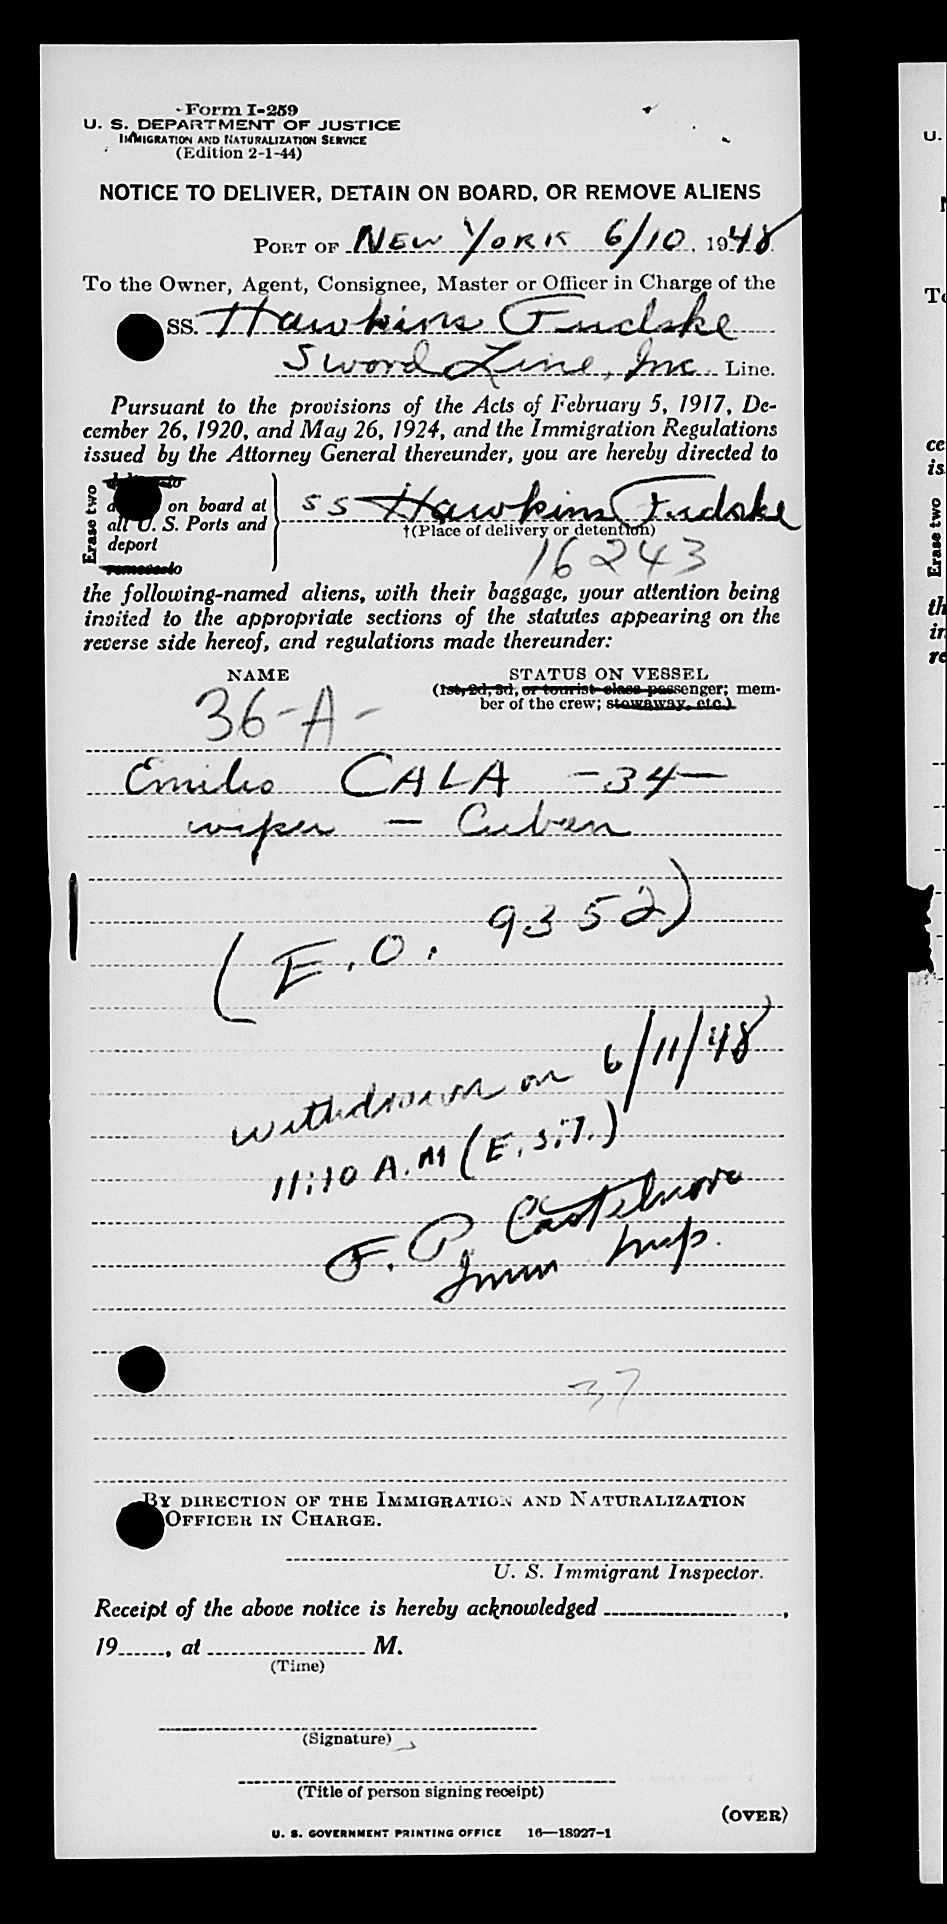 Form I-259
U. S. DEPARTMENT OF JUSTICE
IMMIGRATION AND NATURALIZATION SERVICE
(Edition 2-1-44)
NOTICE TO DELIVER, DETAIN ON BOARD, OR REMOVE ALIENS
PORT OF NEW YORK 6/10, 1948
To the Owner, Agent, Consignee, Master or Officer in Charge of the
SS. Hawkins Fudske
Sword Line, Inc. Line.
Pursuant to the provisions of the Acts of February 5, 1917, De-
cember 26, 1920, and May 26, 1924, and the Immigration Regulations
issued by the Attorney General thereunder, you are hereby directed to
Erase two
on board at
all U. S. Ports and
deport
SS Hawkins Fudske
†(Place of delivery or detention)
16243
the following-named aliens, with their baggage, your attention being
invited to the appropriate sections of the statutes appearing on the
reverse side hereof, and regulations made thereunder:
NAME STATUS ON VESSEL
(1st, 2d, 3d, or tourist-class passenger; mem-
ber of the crew; stowaway, etc.)
36-A-
Emilio CALA -34-
wiper - Cuban
(E.O. 9352)
withdrawn on 6/11/48
11:10 A.M (E.S.T.)
F. P. Castelnovo
Imm Insp.
37
BY DIRECTION OF THE IMMIGRATION AND NATURALIZATION
OFFICER IN CHARGE.
U. S. Immigrant Inspector.
Receipt of the above notice is hereby acknowledged ,
19 , at M.
(Time)
(Signature)
(Title of person signing receipt)
(OVER)
U. S. GOVERNMENT PRINTING OFFICE 16—18927-1